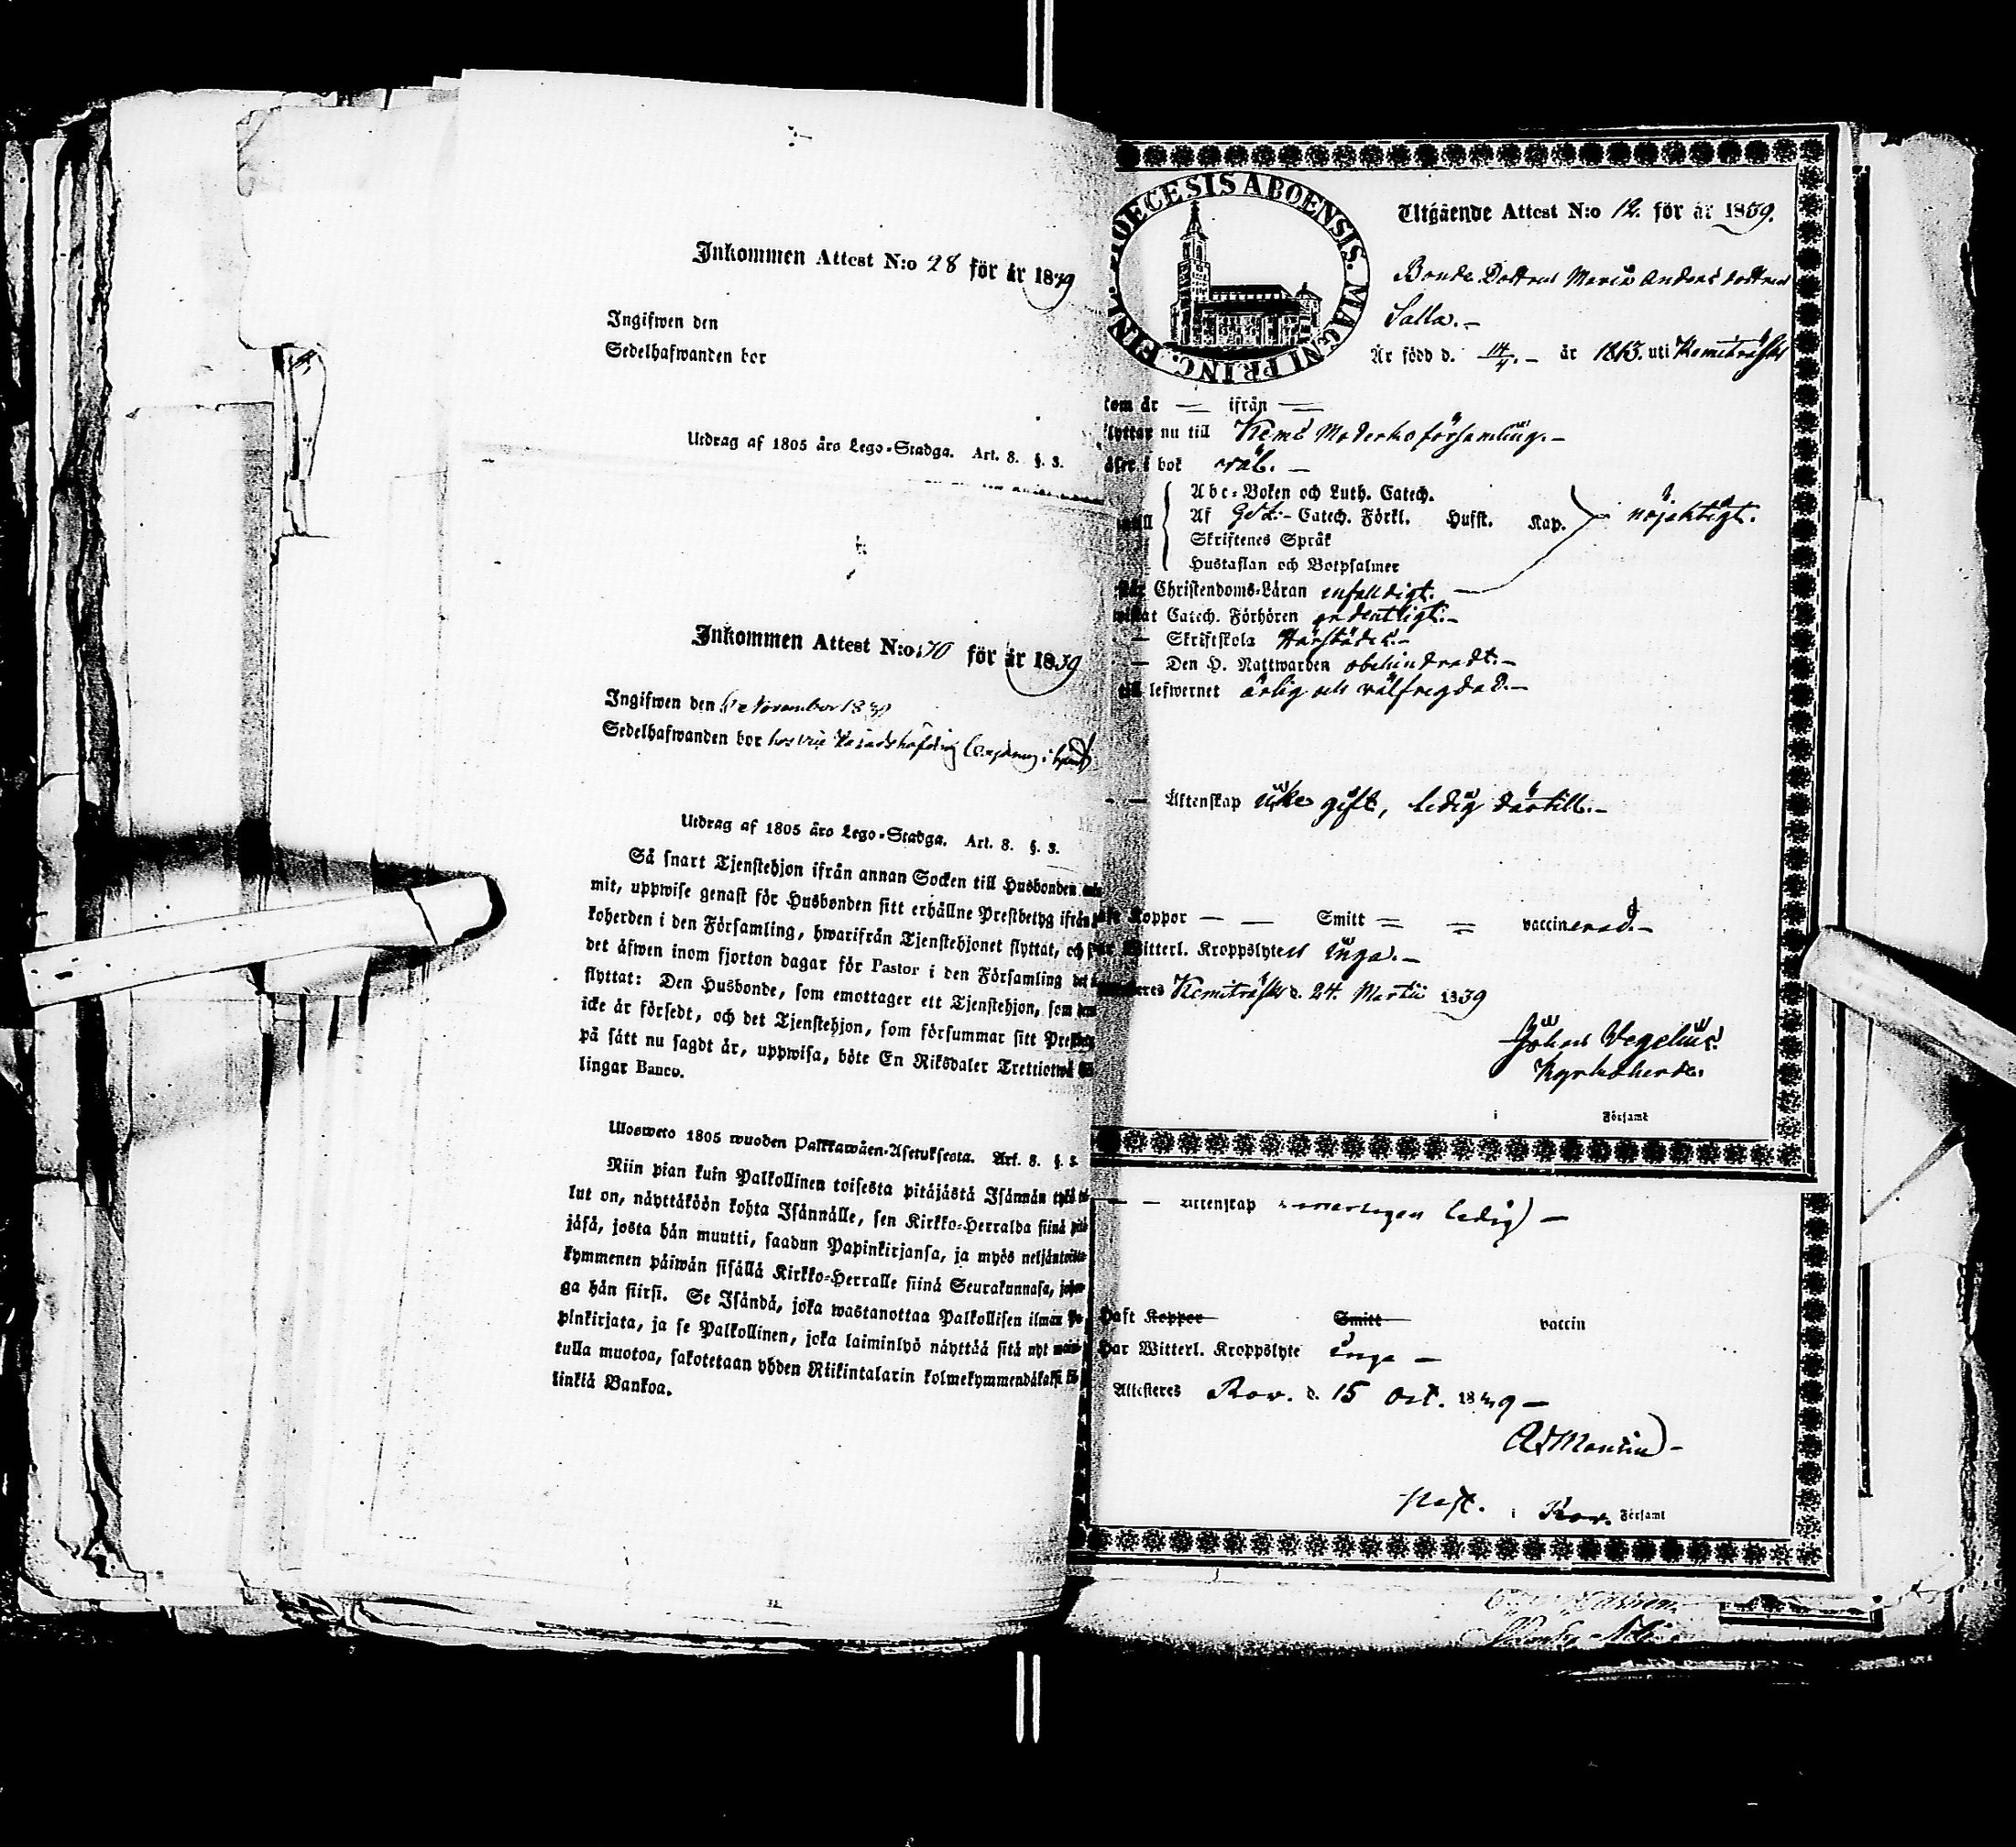 Inkommen Attest N:o 28 för år 1839
Ingifwen den
Sedelhafwanden bor
Utdrag af 1805 års Lego-Stadga. Art. 8. §. 3.
Inkommen Attest N:o 70 för år 1839
Ingifwen den November 1839
Sedelhafwanden bor hos
Utdrag af 1805 års Lego-Stadga. Art. 8. §. 3.
Så snart Tjenstehjon ifrån annan Socken till Husbonden
mit, uppwise genast för Husbonden sitt erhållne Prestbetyg ifrån
koherden i den Församling, hwarifrån Tjenstehjonet flyttat, och
det äfwen inom fjorton dagar för Pastor i den Församling det
flyttat: Den Husbonde, som emottager ett Tjenstehjon, som
icke är försedt, och det Tjenstehjon, som försummar sitt
på sätt nu sagdt är, uppwisa, böte En Riksdaler Trettiotwå
lingar Banco.
Ulosweto 1805 wuoden Palkkawäen-Asetuksesta. Art. 8. §. 3.
Niin pian kuin Palkollinen toisesta pitäjästä Isännän tykö
lut on, näyttäköön kohta Isännälle, sen Kirkko-Herralda siinä
jäsä, josta hän muutti, saadun Papinkirjansa, ja myös neljäntoista-
kymmenen päiwän sisällä Kirkko-Herralle siinä Seurakunnasa,
ga hän siirsi. Se Isändä, joka wastanottaa Palkollisen ilman
pinkirjata, ja se Palkollinen, joka laiminlyö näyttää sitä nyt
tulla muotoa, sakotetaan yhden Riikintalarin kolmekymmendäkaksi
linkiä Bankoa.
DIOECESIS ABOENSIS. MAGNI PRINC. FINL.
Utgående Attest N:o 12. för år 1839.
Bonde Dottren Maria Anders dottren
Salla.-
Är född d. 14/4.- år 1813. uti Kemiträsk
kom år — ifrån —
flyttar nu till Kemi Moderkoförsamling.-
läser i bok väl.-
Abc-Boken och Luth. Catech.
Af Catech. Förkl. Husst. Kap. nöjaktigt.
Skriftenes Språk
Hustaflan och Botpsalmer
Christendoms-Läran enfaldigt.
Catech. Förhören ordentligt.-
— Skriftskola Härstädes.-
— Den H. Nattwarden obehindradt.-
till lefwernet ärlig och välfregdad.-
— — Äktenskap icke gift, ledig därtill.-
haft Koppor — — Smitt — — vaccinerad.-
har Witterl. Kroppslyten inga.-
Attesteres Kemiträsk d. 24. Martii 1839
Johan Wegelius.
Kyrkoherde.
i Församl
— — Äktenskap ledig —
haft Koppor Smitt vaccin
har Witterl. Kroppslyte inga —
Attesteres Rov. d. 15 Oct. 1839 —
Past. i Rov. Församl